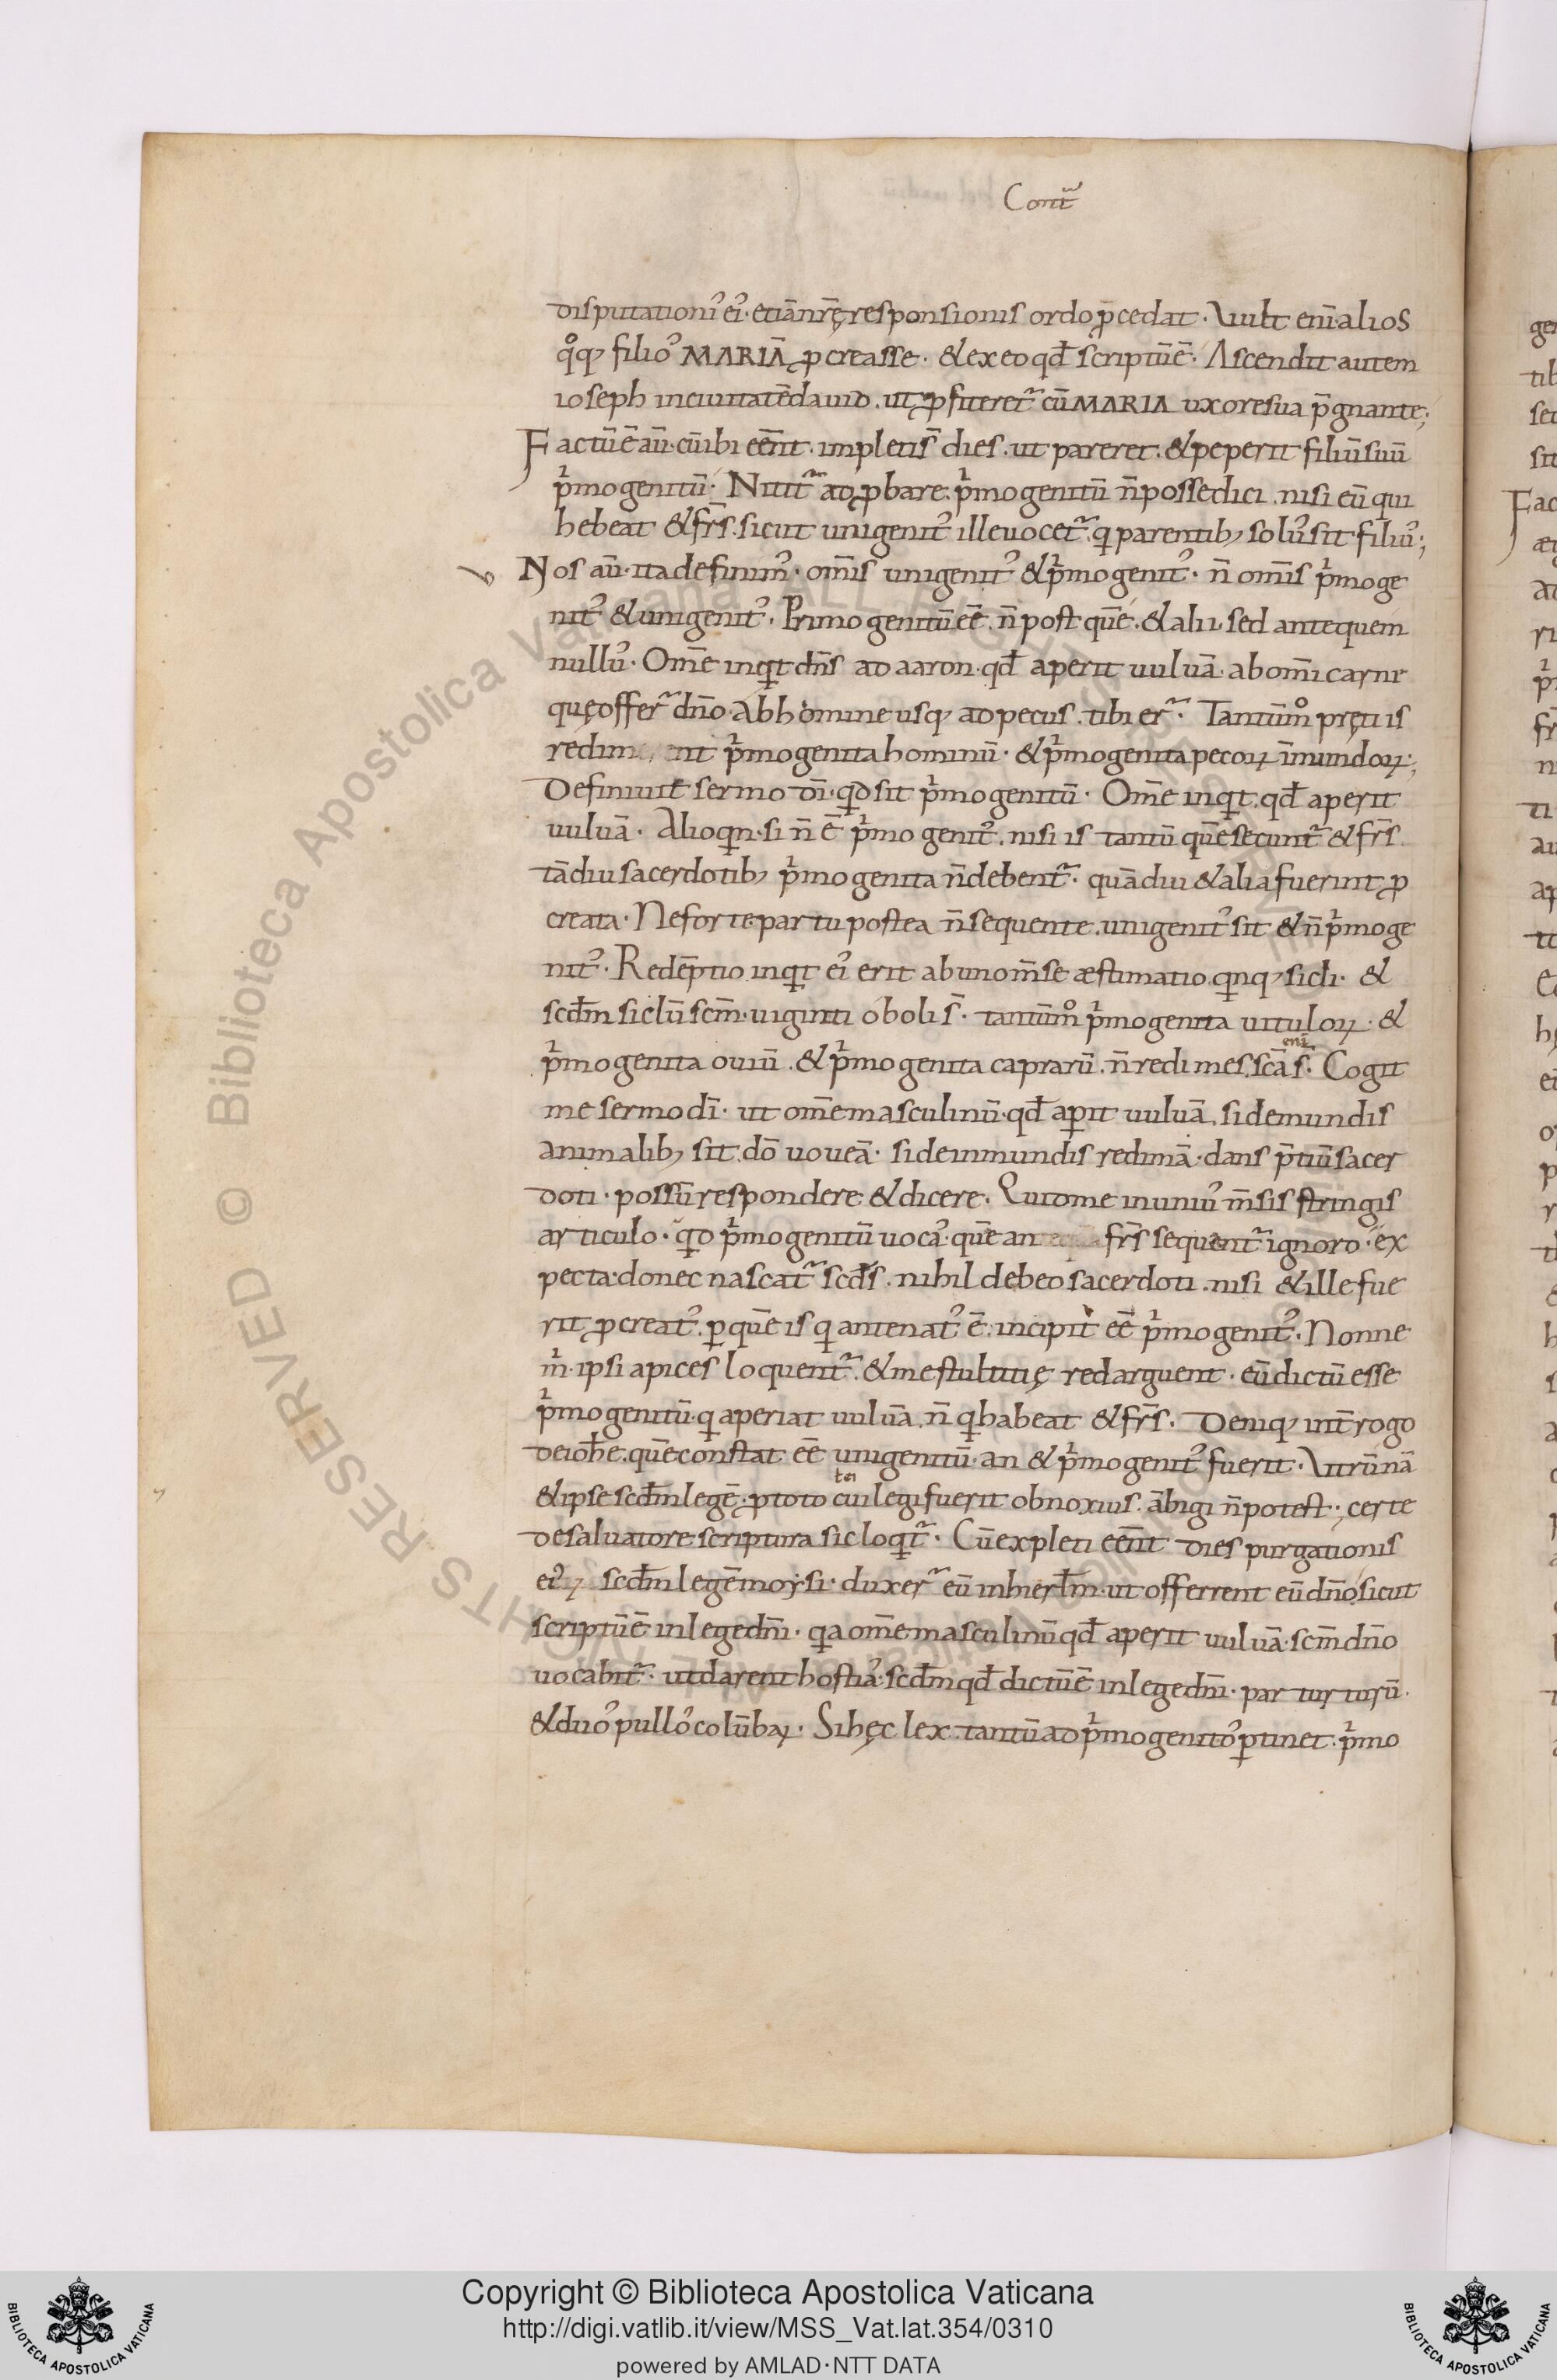 Cont̃
disputationiˀ eiˀ· etiā nr̄ę responsionis ordo p̄cedat· Vult eni̅· alios
qͦq; filioˀ MARIĀ ꝓcreasse· & ex eo qđ scriptū ē· Ascendit autem
ioseph in ciuitatē dauid. ut ꝓfiteret᷑ cū MARIA uxore sua p̄gnante;
Factū ē aū· cū ibi eēnt· impleti s̄ dies. ut pareret. & peperit filiū suū
p̍mogenitū· Nitit᷑ adꝓbare. p̍mogenitū n̄ posse dici. nisi eū qui
hebeat & fr̄s. sicut unigenitˀ ille uocet᷑. q parentib; solˀ sit filiˀ;
Nos aū· ita definimˀ· om̄is unigenitˀ & p̍mogenitˀ· n̄ om̄is p̍moge
nitˀ & unigenitˀ. Primogenitū eē. n̄ post quē. & alii. sed ante quem
nullˀ. Om̄e inqt dn̄s ad aaron· qđ aperit uuluā· ab om̄i carne
quę offer᷑ dn̄o. Ab homine usq; ad pecus. tibi er᷑· Tantūmͦ pręti is
redim ent p̍mogenita hominū· & p̍mogenita pecoꝝ īmundoꝝ;
Definiuit sermo dī· qd sit p̍mogenitū· Om̄e inqt. qđ aperit
uuluā· Alioqn· si n̄ ē p̍mogenitˀ. nisi is tantū quē secunt᷑ & fr̄s.
tādiu sacerdotib; p̍mogenita n̄ debent᷑· quādiu & alia fuerint ꝓ
creata· Ne forte· partu postea n̄ sequente. unigenitˀ sit & n̄ p̍moge
nitˀ· Redēptio inqt eiˀ erit ab uno m̄se æstimatio. qnq; sicli· &
scđm siclū scm̄· uiginti oboli s̄· tantūmͦ p̍mogenita uituloꝝ. &
p̍mogenita ouiū. & p̍mogenita caprarū. n̄ redimes. scā eni̅ s̄· Cogit
me sermo dī· ut om̄e masculinū· qđ apit uuluā. si de mundis
animalib; sit. dō uoueā· si de inmundis redimā· dans p̄tiū sacer
doti· possū respondere & dicere· Quid me in uniˀ m̄sis stringis
articulo· qd p̍mogenitū uocaˀ· quē an fr̄s sequent᷑ ignoro· ex
pecta· donec nascat᷑ scđs. nihil debeo sacerdoti. nisi & ille fue
rit ꝓcreatˀ. ꝑ quē is q ante natˀ ē. incipit eē p̍mogenitˀ. Nonne
m̍· ipsi apices loquent᷑. & me stultitię redarguent· eū dictū esse
p̍mogenitū· q aperiat uuluā. n̄ q habeat & fr̄s. Deniq; int̄rogo
de ioħe. quē constat eē unigenitū· an & p̍mogenitˀ fuerit· Vtrū nā
& ipse scđm legē· ꝓ toto ten cui legi fuerit obnoxius. ābigi n̄ potest; certe
de saluatore scriptura sic loqt᷑· Cū expleti eēnt dies purgationis
eiˀ scđm legē moysi· duxer᷑ eū in hierłm· ut offerrent eū dn̄o. sicut
scriptū ē in lege dn̄i· qa om̄e masculinū qđ aperit uuluā· scm̄ dn̄o
uocabit᷑· ut darent hostiāˀ· scđm qđ dictū ē in lege dn̄i· par turturū·
& duoˀ pulloˀ colūbaꝝ· Si hęc lex tantū ad p̍mogenitoˀ ꝑtinet. p̍mo